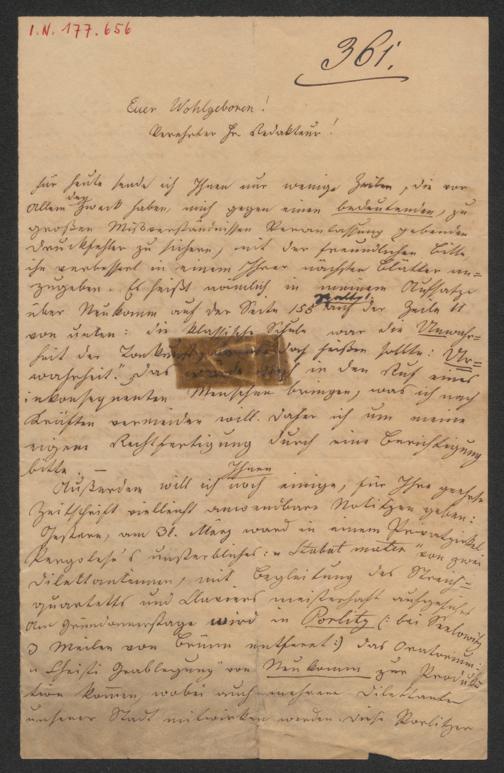 I.N. 177.656
361.
Euer Wohlgeboren!
Verehrter Hr. Redakteur!
Für heute sende ich Ihnen nur wenige Zeilen, die vor
Allem den Zweck haben, mich gegen einen bedeutenden, zu
großen Missverständnissen Veranlassung gebenden
Druckfehler zu sichern, mit der freundlichen Bitte
ihn verbessert in einem Ihrer nächsten Blätter an-
zugeben. Es heißt nämlich in meinem Aufsatze
über Neukomm auf der Seite 155 auf der Zeile 11
von unten: die klassische Schule war die Unwahr-
heit der Tonkunst, doch heißen sollte: Ur-
wahrheit." Das in den Ruf eines
inkonsequenten Menschen bringen, was ich nach
Kräften vermeiden will. Daher ich um meine
eigene Rechtfertigung durch eine Berichtigung
bitte. —
Außerdem will ich Ihnen noch einige, für Ihre geehrte
Zeitschrift vielleicht anwendbare Notitzen geben:
Gestern, am 31. März ward in einem Privatzirkel
Pergolese's unsterbliches: "Stabat mater" von zwei
Dilettantinnen, mit Begleitung des Streich-
quartetts und Klaviers meisterhaft aufgeführt
Am Gründonnerstage wird in Porlitz (: bei Seelowitz
3 Meilen von Brünn entfernt:) das Oratorium:
"Christi Grablegung" von Neukomm zur Produk-
tion kommen, wobei auch mehrere Dilettanten
unserer Stadt mitwirken werden. Diese Porlitzer